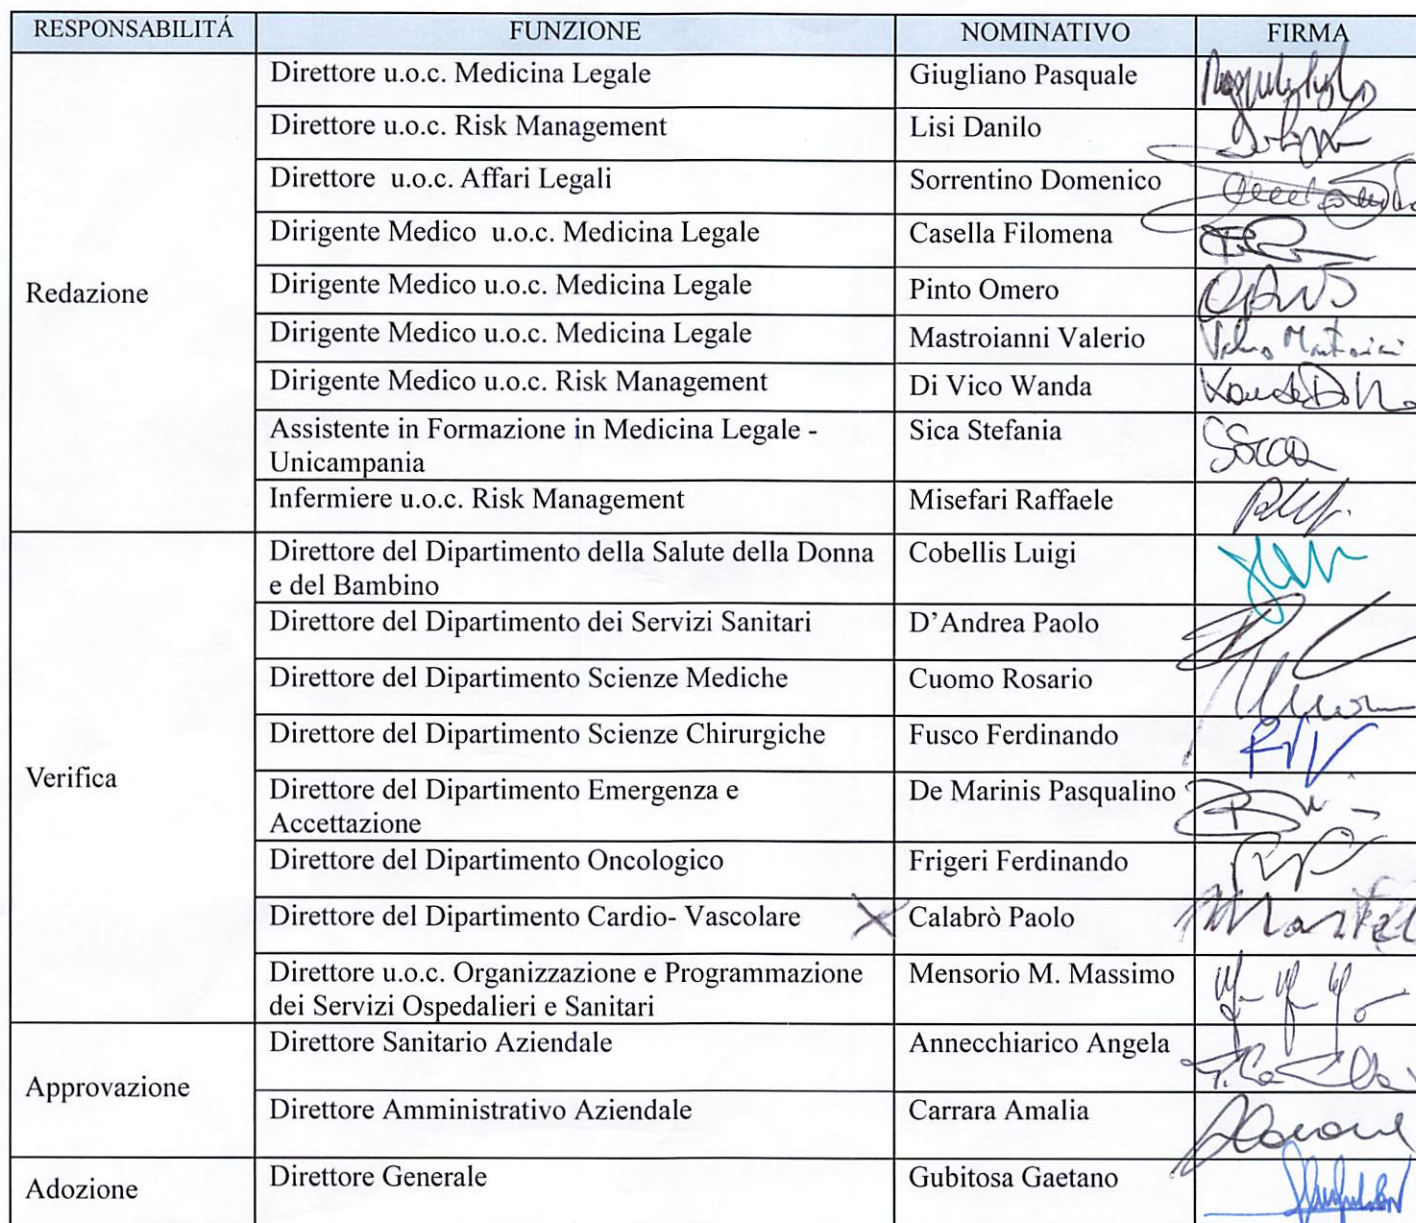 RESPONSABILITÁ FUNZIONE NOMINATIVO FIRMA
Redazione
Direttore u.o.c. Medicina Legale Giugliano Pasquale
Direttore u.o.c. Risk Management Lisi Danilo
Direttore u.o.c. Affari Legali Sorrentino Domenico
Dirigente Medico u.o.c. Medicina Legale Casella Filomena
Dirigente Medico u.o.c. Medicina Legale Pinto Omero
Dirigente Medico u.o.c. Medicina Legale Mastroianni Valerio
Dirigente Medico u.o.c. Risk Management Di Vico Wanda
Assistente in Formazione in Medicina Legale - Sica Stefania
Unicampania
Infermiere u.o.c. Risk Management Misefari Raffaele
Verifica
Direttore del Dipartimento della Salute della Donna Cobellis Luigi
e del Bambino
Direttore del Dipartimento dei Servizi Sanitari D’Andrea Paolo
Direttore del Dipartimento Scienze Mediche Cuomo Rosario
Direttore del Dipartimento Scienze Chirurgiche Fusco Ferdinando
Direttore del Dipartimento Emergenza e De Marinis Pasqualino
Accettazione
Direttore del Dipartimento Oncologico Frigeri Ferdinando
Direttore del Dipartimento Cardio- Vascolare Calabrò Paolo
Direttore u.o.c. Organizzazione e Programmazione Mensorio M. Massimo
dei Servizi Ospedalieri e Sanitari
Approvazione
Direttore Sanitario Aziendale Annecchiarico Angela
Direttore Amministrativo Aziendale Carrara Amalia
Adozione Direttore Generale Gubitosa Gaetano